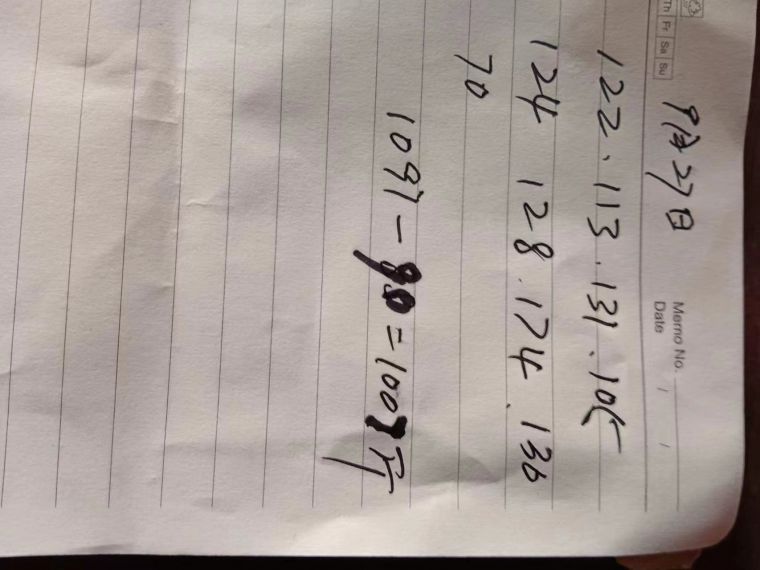 Th Fr Sa Su
Memo No.
Date / /
9月27日
122.113.131.105
124 128.174.130
70
1097-90=1007斤